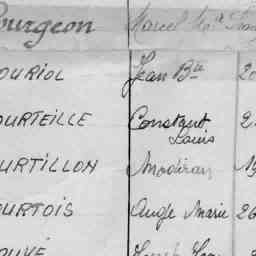 ourgeon Marcel
OURIOL Jean Bte 20
OURTEILLE Constant 2
Louis
URTILLON Modéran 19
OURTOIS Ange Marie 26
OUVÉ